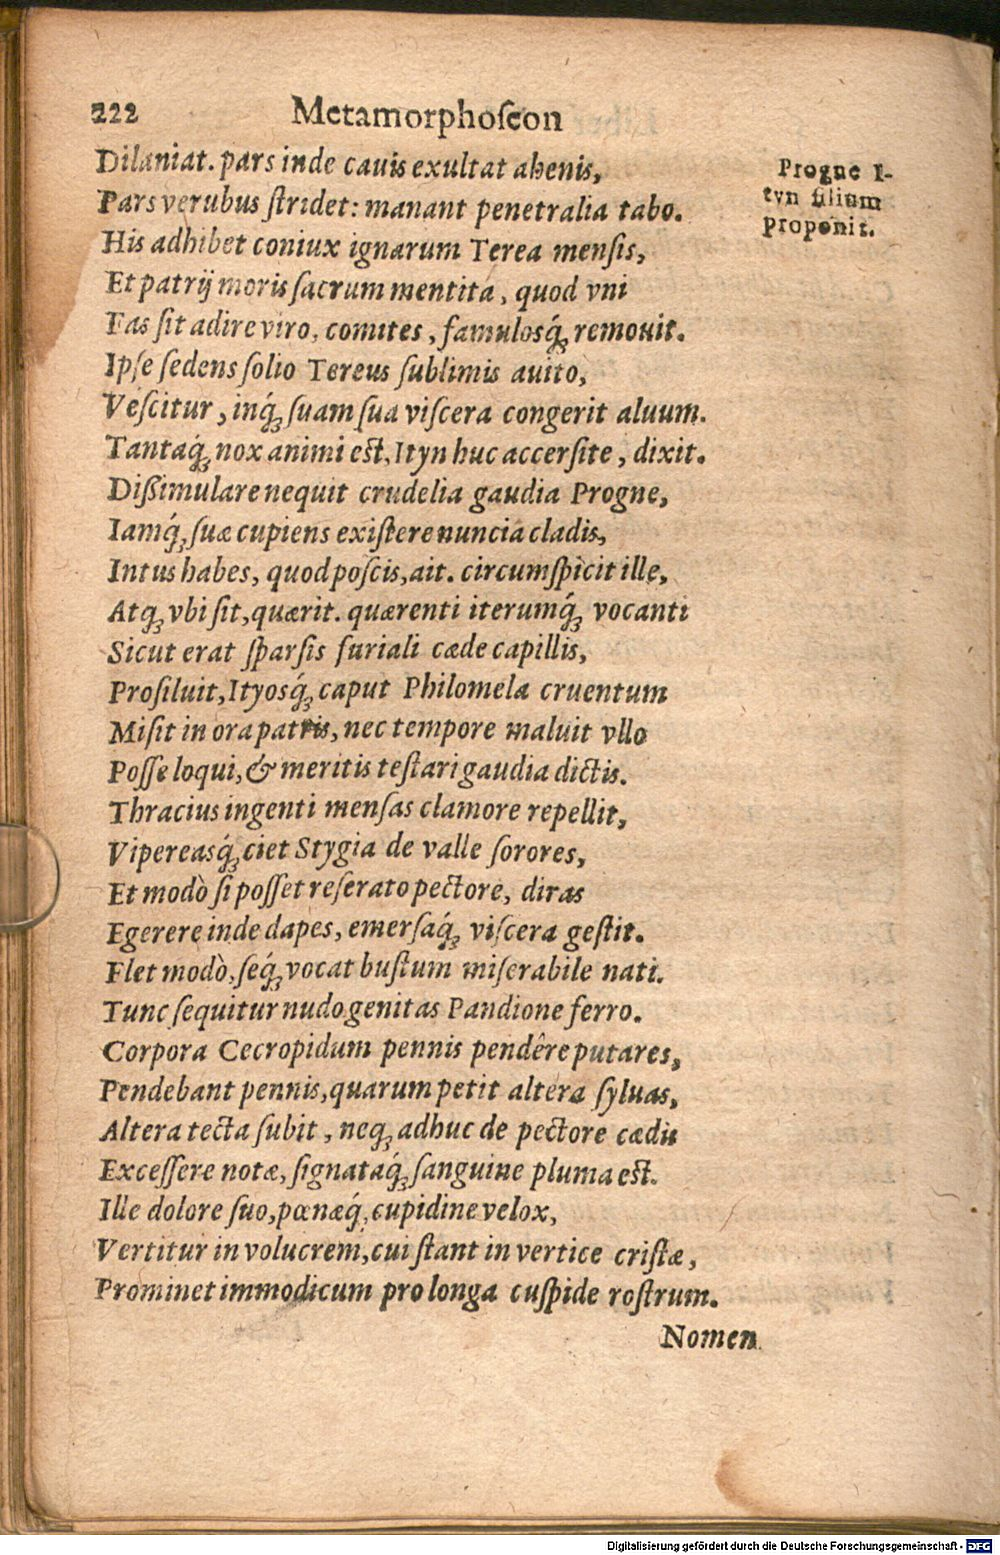 222 Metamorphoſeon
Dilaniat. pars inde cauis exultat ahenis,
Pars verubus ſtridet: manant penetralia tabo.
Progne I-
tyn filium
proponit.
His adhibet coniux ignarum Terea menſis,
Et patrij moris ſacrum mentita, quod vni
Fas ſit adire viro, comites, famulosq́ꝫ remouit.
Ipſe ſedens ſolio Tereus ſublimis auito,
Veſcitur, inq́ꝫ ſuam ſua viſcera congerit aluum.
Tantaq́ꝫ nox animi est, Ityn huc accerſite, dixit.
Dißimulare nequit crudelia gaudia Progne,
Iamq́ꝫ ſuæ cupiens exiſtere nuncia cladis,
Intus habes, quod poſcis, ait. circumſpicit ille,
Atqꝫ vbi ſit, quærit. quærenti iterumq́ꝫ vocanti
Sicut erat ſparſis furiali cæde capillis,
Proſiluit, Ityosq́ꝫ caput Philomela cruentum
Miſit in ora patris, nec tempore maluit vllo
Poſſe loqui, & meritis teſtari gaudia dictis.
Thracius ingenti menſas clamore repellit,
Vipereasq́ꝫ ciet Stygia de valle ſorores,
Et modò ſi poſſet reſerato pectore, diras
Egerere inde dapes, emerſaq́ꝫ viſcera geſtit.
Flet modò, ſeq́ꝫ vocat buſtum miſerabile nati.
Tunc ſequitur nudo genitas Pandione ferro.
Corpora Cecropidum pennis pendêre putares,
Pendebant pennis, quarum petit altera ſyluas,
Altera tecta ſubit, neqꝫ adhuc de pectore cædis
Exceſſere notæ, ſignataq́ꝫ ſanguine pluma est.
Ille dolore ſuo, pœnæq́ꝫ cupidine velox,
Vertitur in volucrem, cui ſtant in vertice criſtæ,
Prominet immodicum pro longa cuſpide roſtrum.
Nomen
Digitalisierung gefördert durch die Deutsche Forschungsgemeinschaft - DFG